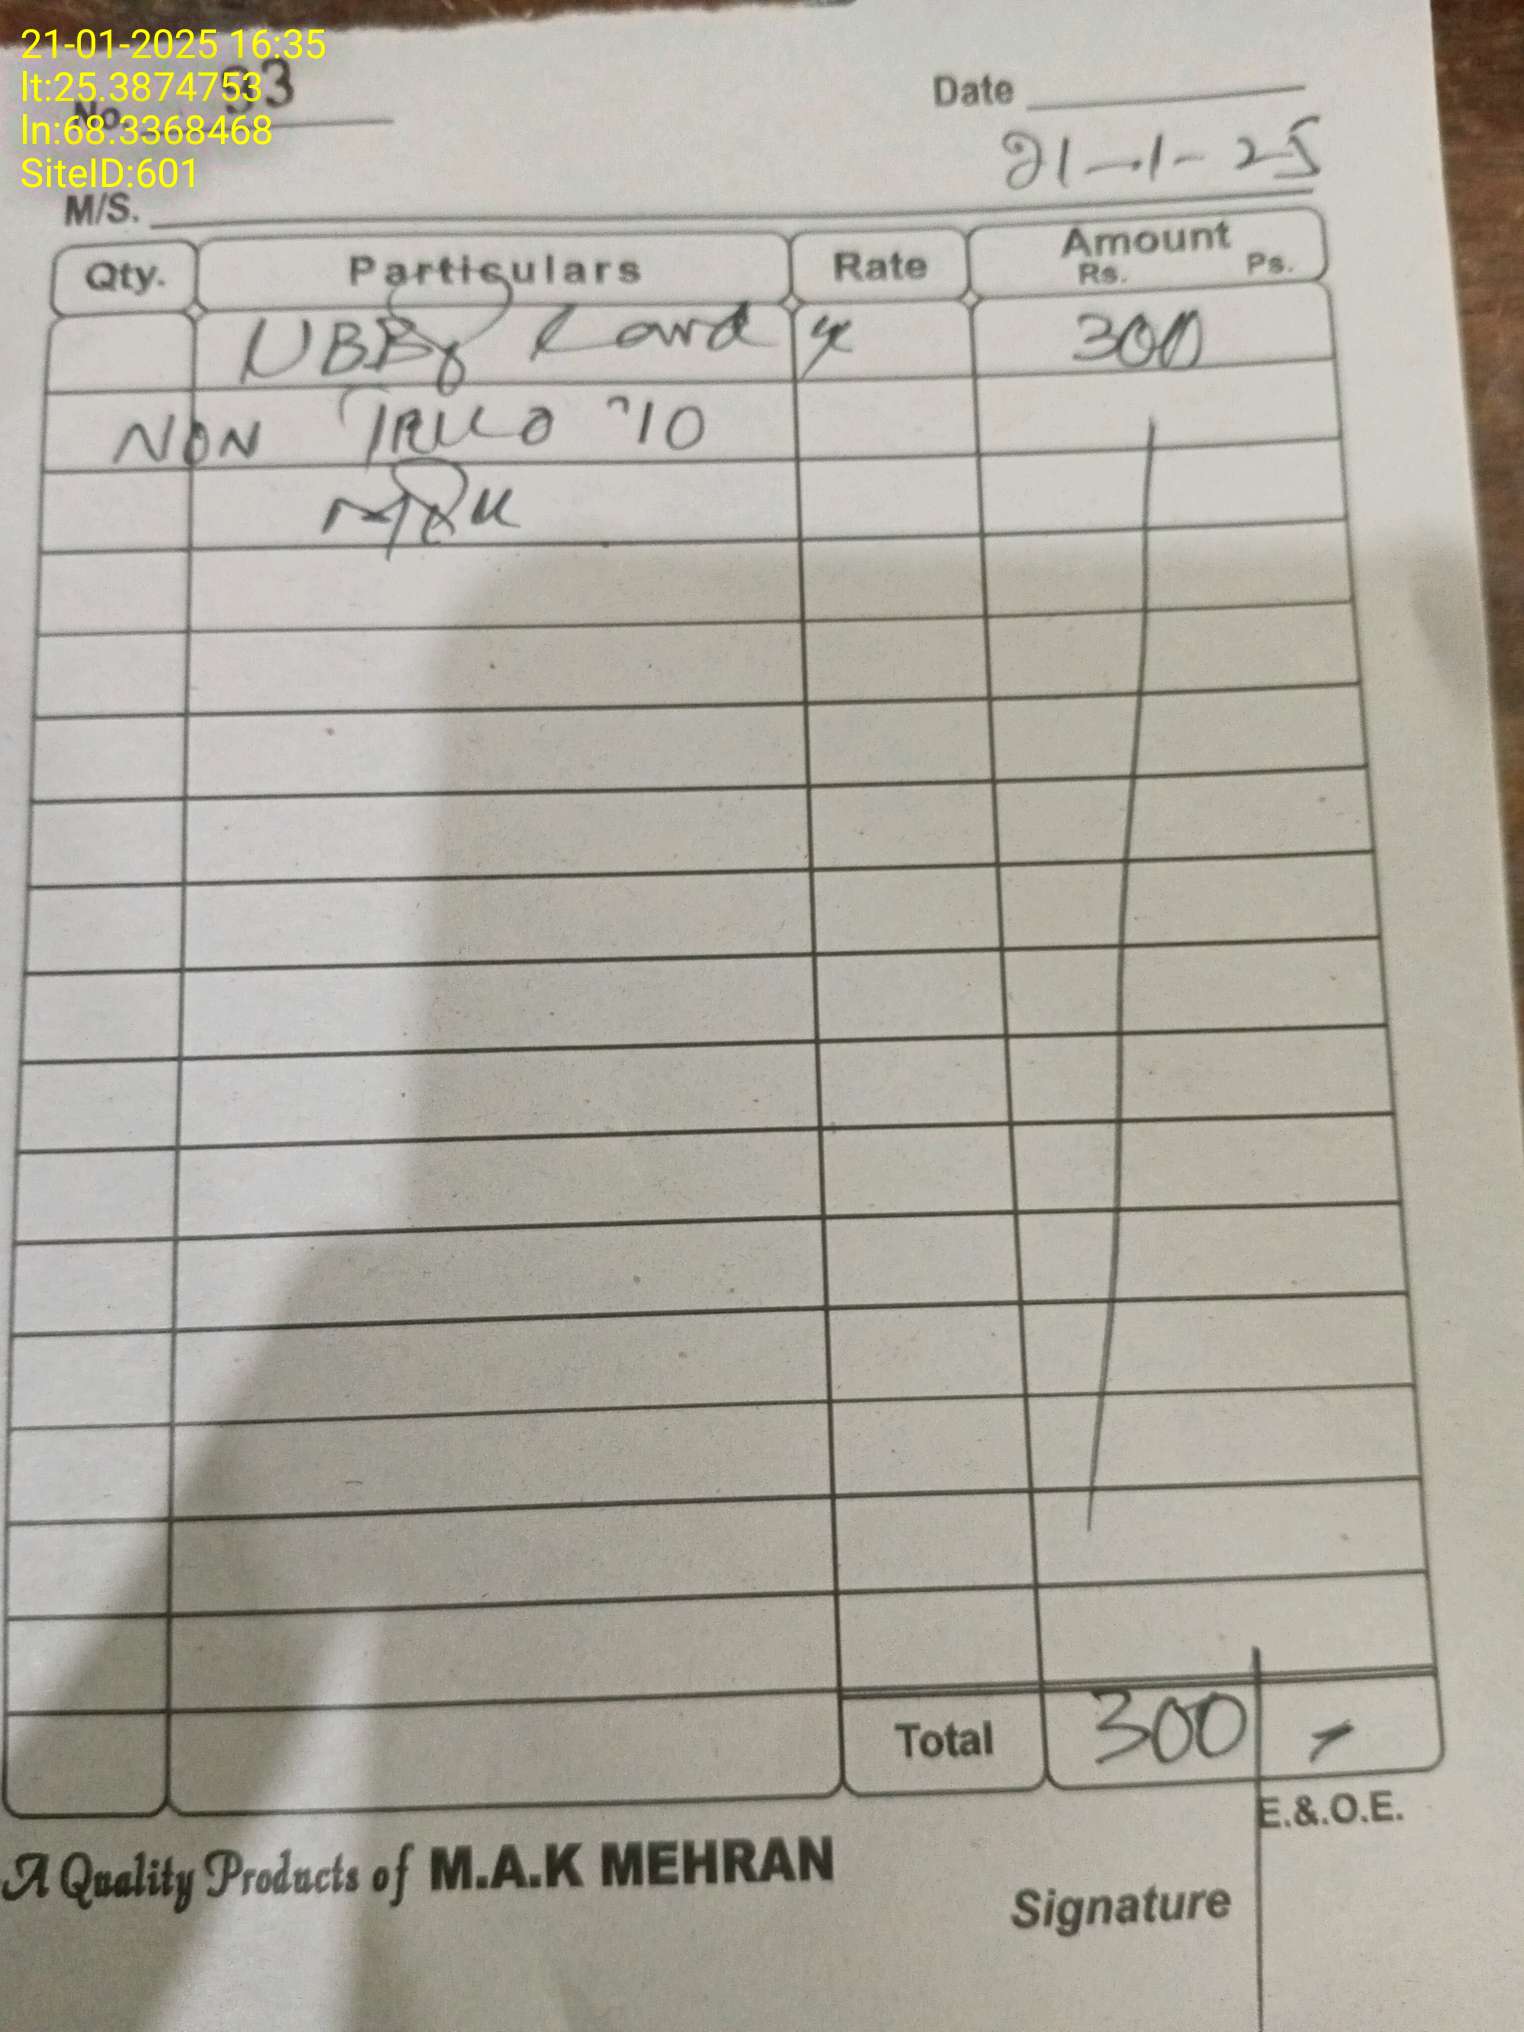 21-01-2025 16:35
lt:25.3874753
ln:68.3368468
SiteID:601
No. 93
Date
21-1-25
M/S.
Qty. Particulars Rate Amount
Rs. Ps.
300
NON
Total 300 -
E.&.O.E.
A Quality Products of M.A.K MEHRAN
Signature